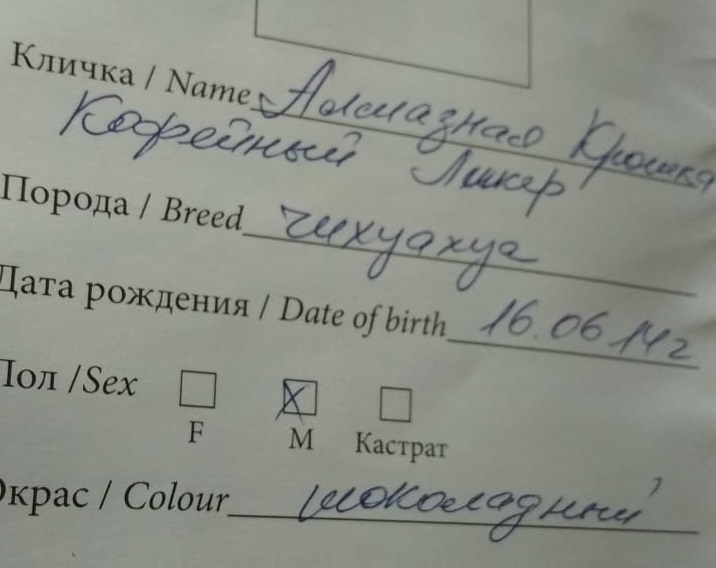 Кличка / Name Алмазная Крошка
Кофейный Ликер
Порода / Breed чихуахуа
Дата рождения / Date of birth 16.06 14г
Пол / Sex
F M Кастрат
Окрас / Colour шоколадный